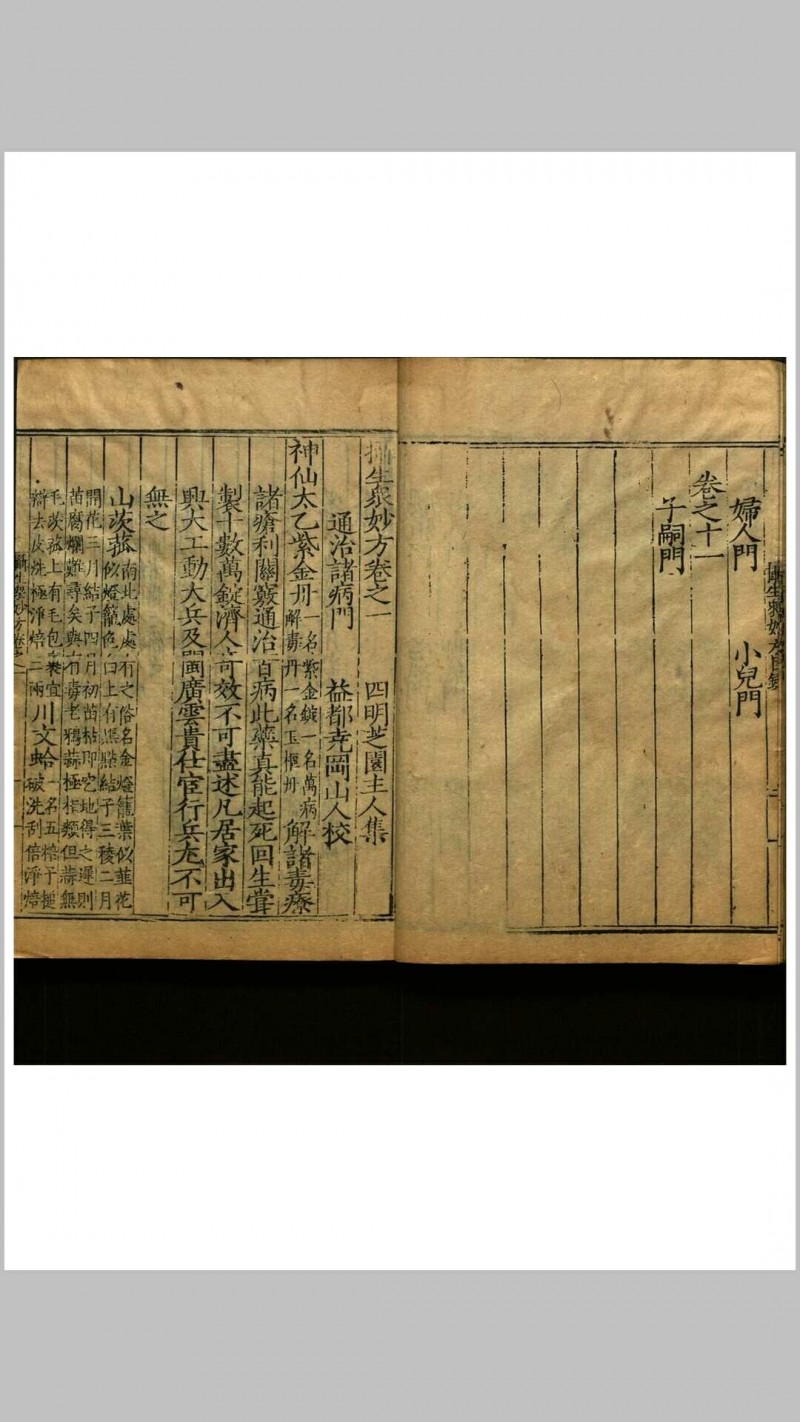 婦人門　小兒門
卷之十一
子嗣門
攝生衆妙方卷之一
四明芝園主人集
通治諸病門　益都堯岡山人校
神仙太乙紫金丹一名紫金錠一名萬病解毒丹一名玉樞丹解諸毒療
諸瘡利關竅通治百病此藥真能起死回生甞
製十數萬錠濟人奇效不可盡述凡居家出入
興大工動大兵及閩廣雲貴仕宦行兵尤不可
無之
山茨菰南北處處有之俗名金燈籠葉似韮花
似燈籠色白上有黑點結子三稜二月
開花三月結子四月初苗枯即空地得之遲則
苗腐爛難尋矣與有毒老鴉蒜極相類但蒜無
毛茨菰上有毛包裹宜
去皮洗極淨焙二兩川文蛤一名五棓子搥
破洗刮倍淨焙